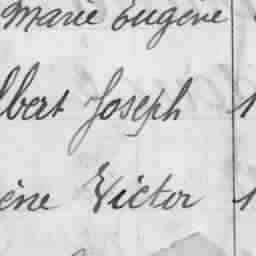 Marie Eugène
lbert Joseph 1
ène Victor 1